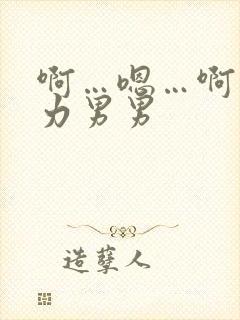 啊…嗯…啊
力男男
造孽人